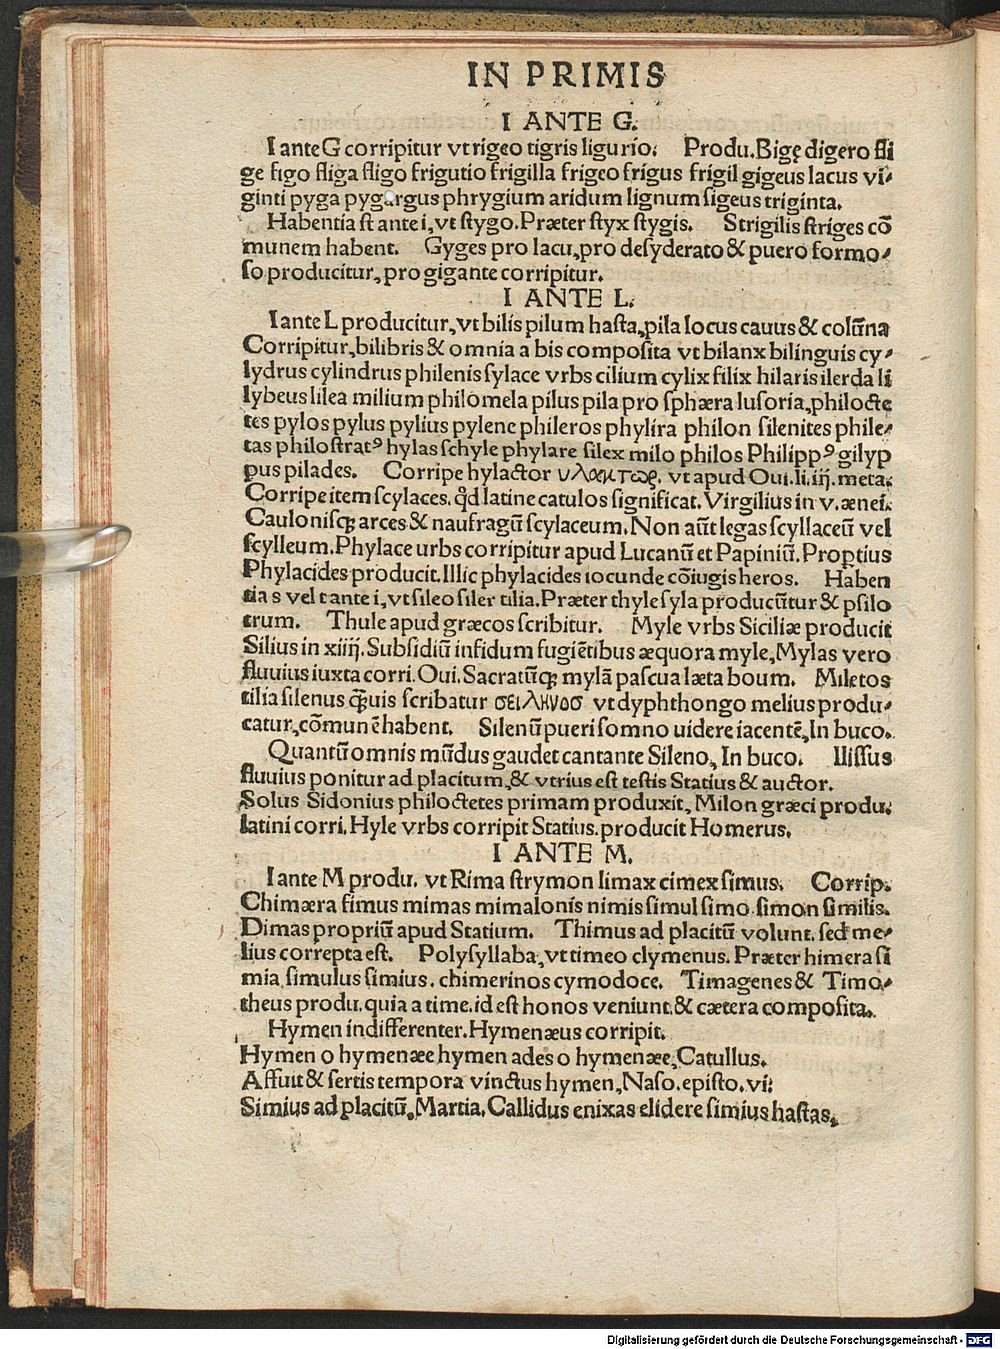 IN PRIMIS
I ANTE G.
I ante G corripitur vt rigeo tigris ligurio. Produ. Bigę digero fli
ge figo fliga fligo frigutio frigilla frigeo frigus frigil gigeus lacus vi-
ginti pyga pygargus phrygium aridum lignum sigeus triginta.
Habentia st ante i, vt stygo. Præter styx stygis. Strigilis striges cō
munem habent. Gyges pro lacu, pro desyderato & puero formo-
so producitur, pro gigante corripitur.
I ANTE L.
I ante L producitur, vt bilis pilum hasta, pila locus cauus & colūna
Corripitur, bilibris & omnia a bis composita vt bilanx bilinguis cy-
lydrus cylindrus philenis sylace vrbs cilium cylix filix hilaris ilerda li
lybeus lilea milium philomela pilus pila pro sphæra lusoria, philocte
tes pylos pylus pylius pylene phileros phylira philon silenites phile-
tas philostratꝰ hylas schyle phylare silex milo philos Philippꝰ gilyp
pus pilades. Corripe hylactor υλακτωρ. vt apud Oui. li. iij. meta.
Corripe item scylaces. qd latine catulos significat. Virgilius in v. ænei.
Caulonisqꝫ arces & naufragū scylaceum. Non aūt legas scyllaceū vel
scylleum. Phylace urbs corripitur apud Lucanū et Papiniū. Proptius
Phylacides producit. Illic phylacides iocunde cōiugis heros. Haben
tia s vel t ante i, vt sileo siler tilia. Præter thyle syla producūtur & psilo
trum. Thule apud græcos scribitur. Myle vrbs Siciliæ producit
Silius in xiiij. Subsidiū infidum fugiētibus æquora myle, Mylas vero
fluuius iuxta corri. Oui. Sacratūqꝫ mylā pascua læta boum. Miletos
tilia silenus qᷓuis scribatur σειληνοσ vt dyphthongo melius produ-
catur, cōmunē habent. Silenū pueri somno uidere iacentē, In buco.
Quantū omnis mūdus gaudet cantante Sileno, In buco. Ilissus
fluuius ponitur ad placitum, & vtrius est testis Statius & auctor.
Solus Sidonius philoctetes primam produxit, Milon græci produ.
latini corri. Hyle vrbs corripit Statius. producit Homerus.
I ANTE M.
I ante M produ. vt Rima strymon limax cimex simus. Corrip.
Chimæra fimus mimas mimalonis nimis simul simo simon similis.
Dimas propriū apud Statium. Thimus ad placitū volunt. sed me-
lius correpta est. Polysyllaba, vt timeo clymenus. Præter himera si
mia simulus simius. chimerinos cymodoce. Timagenes & Timo-
theus produ. quia a time. id est honos veniunt. & cætera composita.
Hymen indifferenter. Hymenæus corripit.
Hymen o hymenæe hymen ades o hymenæe, Catullus.
Affuit & sertis tempora vinctus hymen, Naso. episto. vi.
Simius ad placitū, Martia. Callidus enixas elidere simius hastas.
Digitalisierung gefördert durch die Deutsche Forschungsgemeinschaft - DFG